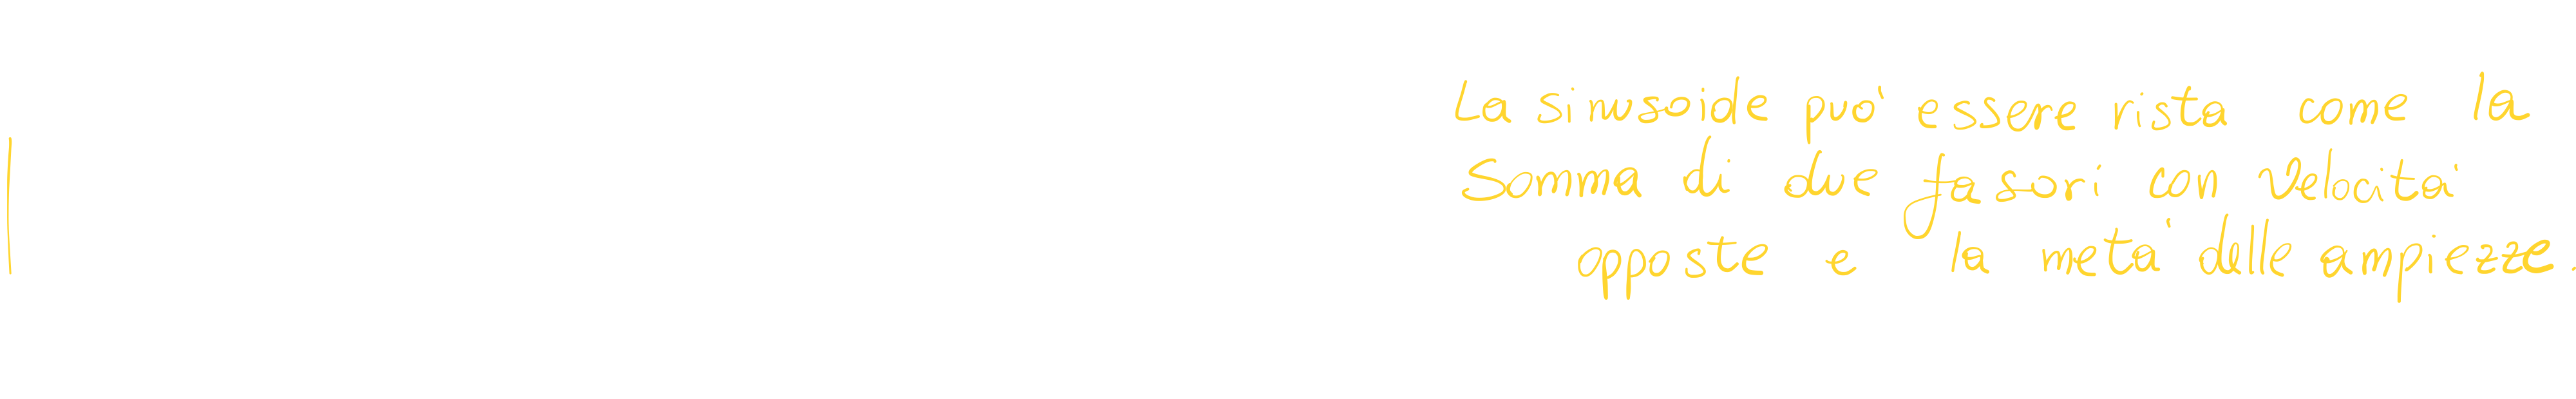 La sinusoide può essere vista come la
Somma di due fasori con velocità
opposte e la metà delle ampiezze.